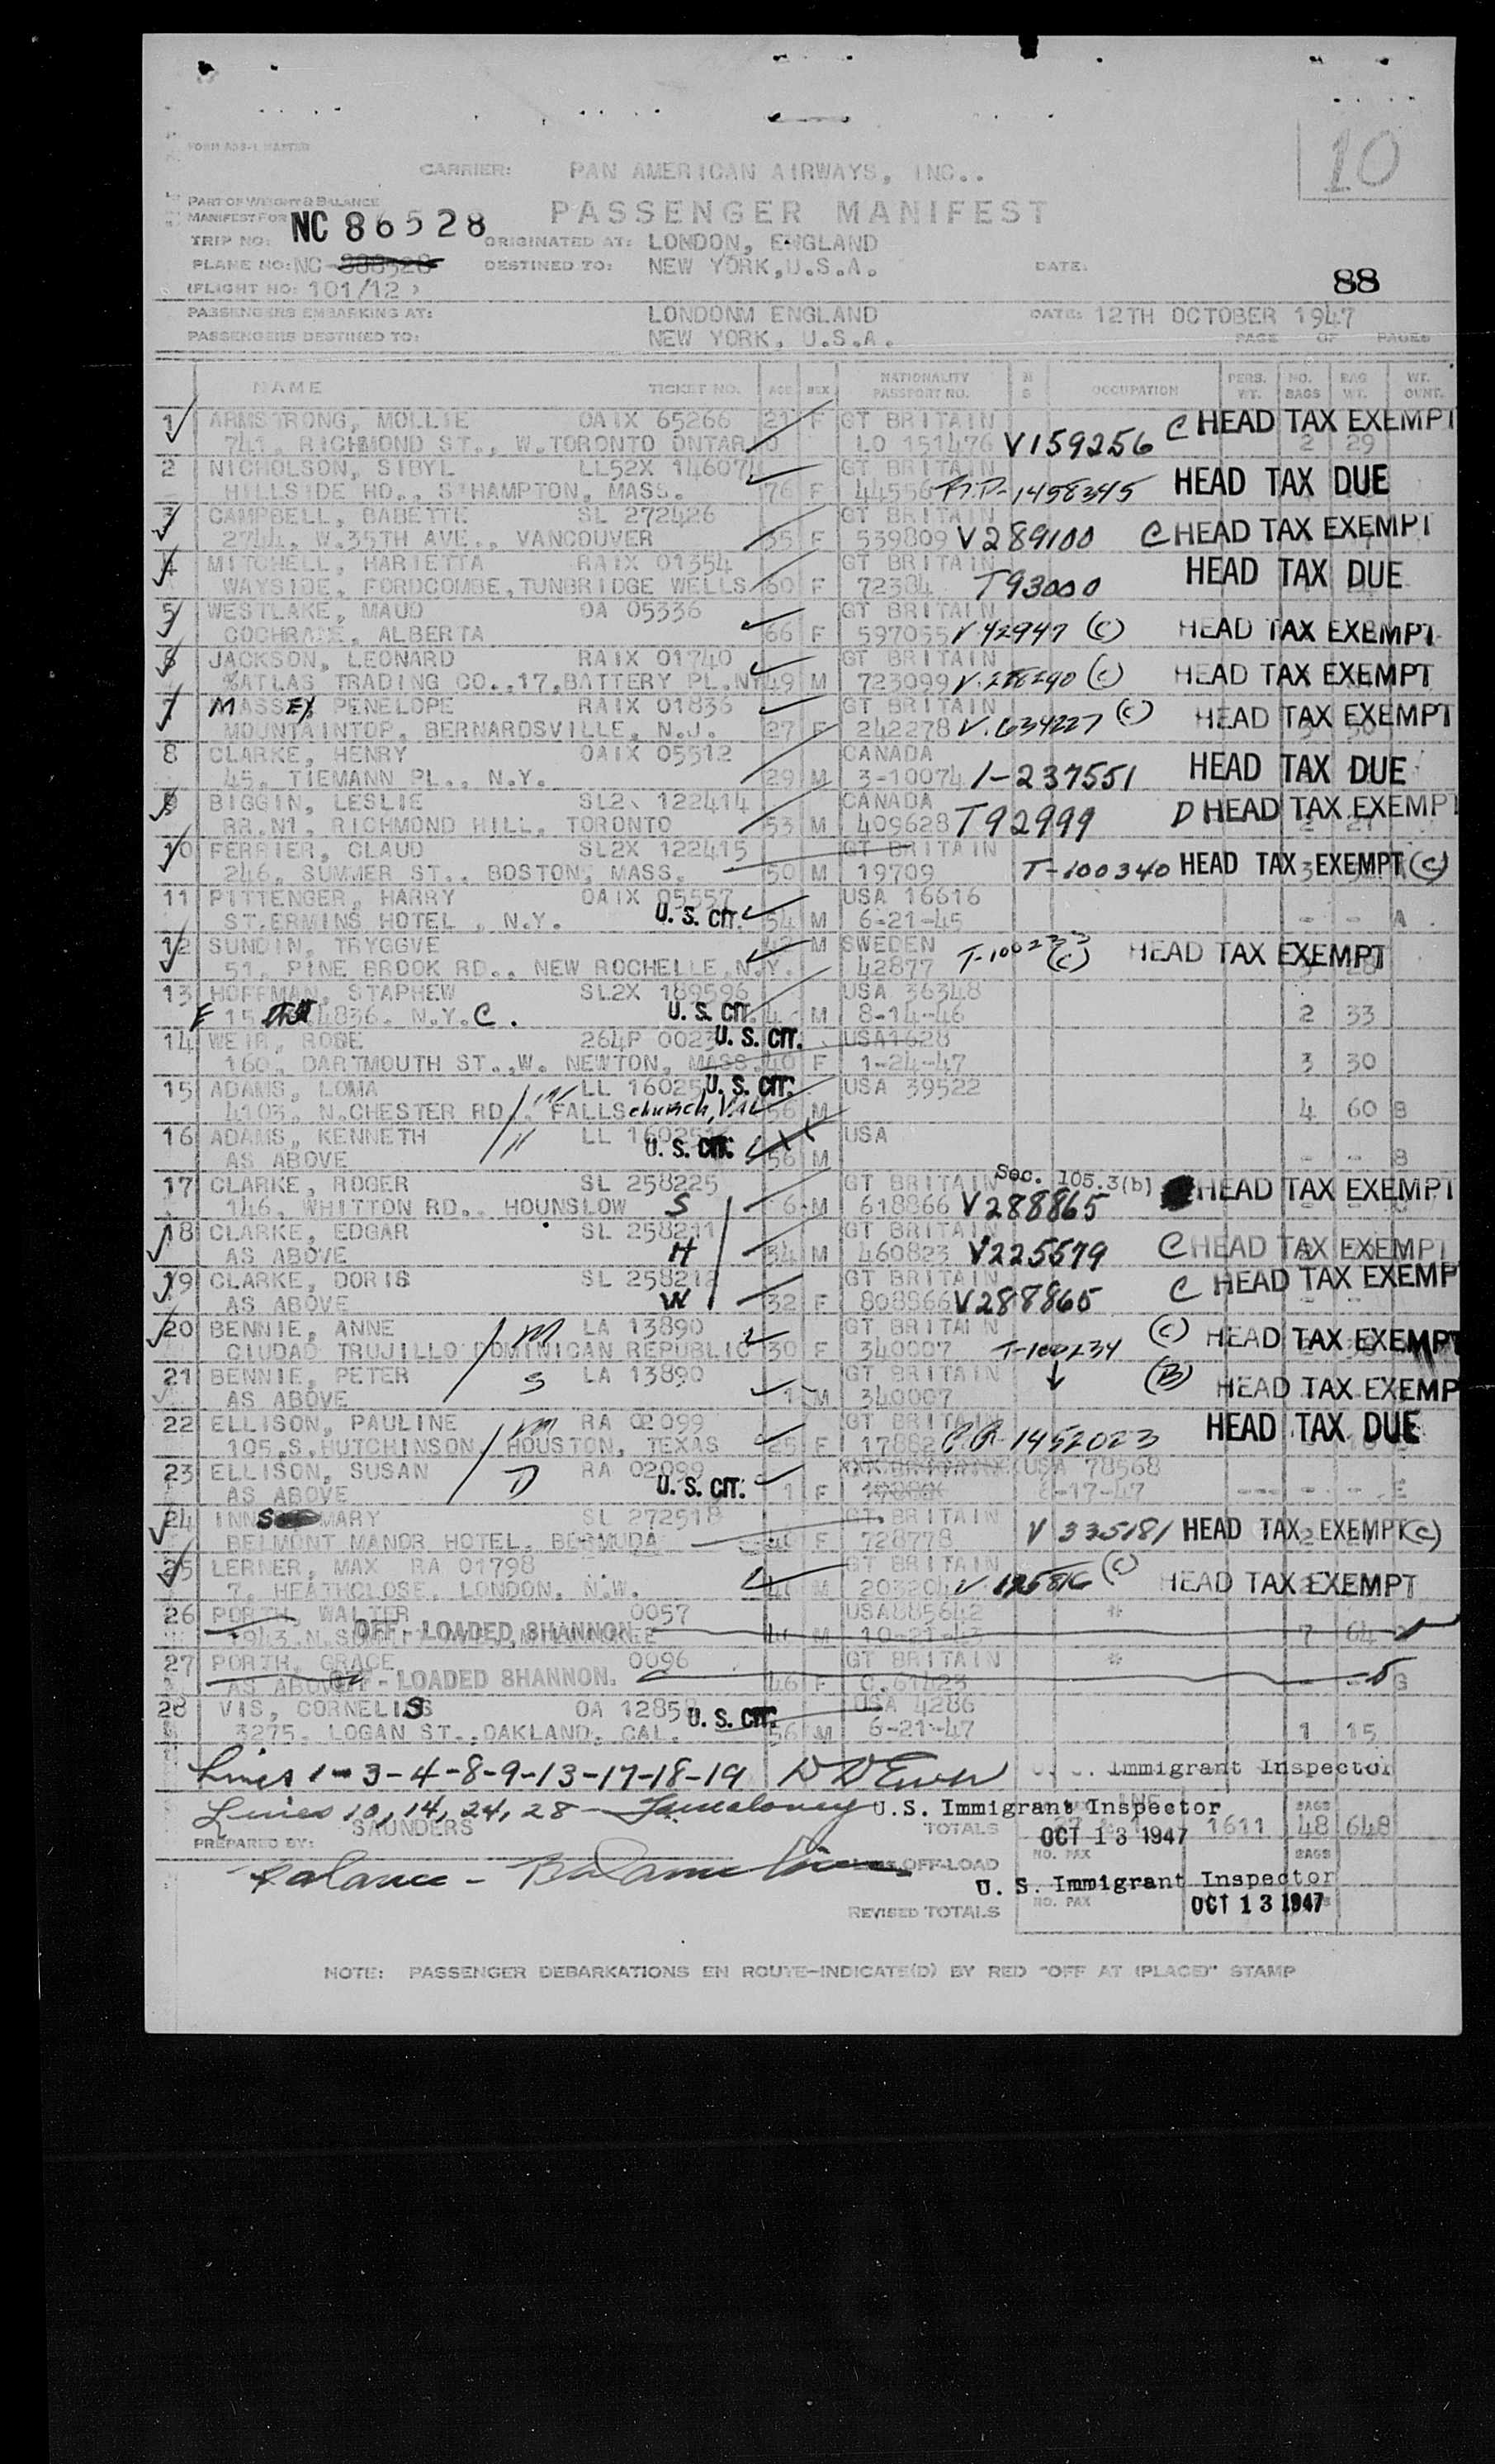 10
FORM ADS-L MASTER
CARRIER: PAN AMERICAN AIRWAYS, INC..
PART OF WEIGHT & BALANCE
MANIFEST FOR NC 86528 PASSENGER MANIFEST
TRIP NO: ORIGINATED AT: LONDON, ENGLAND
PLANE NO: NC DESTINED TO: NEW YORK, U.S.A. DATE:
(FLIGHT NO: 101/12 ) 88
PASSENGERS EMBARKING AT: LONDONM ENGLAND DATE: 12TH OCTOBER 1947
PASSENGERS DESTINED TO: NEW YORK, U.S.A. PAGE OF PAGES
NAME TICKET NO. AGE SEX NATIONALITY PASSPORT NO. OCCUPATION PERS. WT. NO. BAGS BAG WT. WT. OUNT.
1 ARMSTRONG, MOLLIE OAIX 65266 21 F GT BRITAIN C HEAD TAX EXEMPT
741, RICHMOND ST., W.TORONTO ONTARIO LO 151476 V159256 2 29
2 NICHOLSON, SIBYL LL52X 146074 GT BRITAIN
HILLSIDE HO., STHAMPTON, MASS. 76 F 44556 R.P-1458345 HEAD TAX DUE
3 CAMPBELL, BABETTE SL 272426 GT BRITAIN
2744, W.35TH AVE., VANCOUVER 35 F 539809 V289100 C HEAD TAX EXEMPT
4 MITCHELL, HARIETTA RAIX 01354 GT BRITAIN HEAD TAX DUE
WAYSIDE, FORDCOMBE, TUNBRIDGE WELLS 60 F 72384 T93000
5 WESTLAKE, MAUD OA 05336 GT BRITAIN
COCHRANE, ALBERTA 66 F 597055 V 42947 (C) HEAD TAX EXEMPT
6 JACKSON, LEONARD RAIX 01740 GT BRITAIN
%ATLAS TRADING CO.,17,BATTERY PL.NY 49 M 723099 (C) HEAD TAX EXEMPT
7 MASSEY, PENELOPE RAIX 01836 GT BRITAIN
MOUNTAINTOP, BERNARDSVILLE, N.J. 27 F 242278 V.634227 (C) HEAD TAX EXEMPT
8 CLARKE, HENRY OAIX 05512 CANADA
45, TIEMANN PL., N.Y. 29 M 3-10074 1-237551 HEAD TAX DUE
9 BIGGIN, LESLIE SL2X 122414 CANADA
RR.N1, RICHMOND HILL, TORONTO 53 M 409628 T92999 D HEAD TAX EXEMPT
10 FERRIER, CLAUD SL2X 122415 GT BRITAIN
246, SUMMER ST., BOSTON, MASS. 50 M 19709 T-100340 HEAD TAX EXEMPT (C)
11 PITTENGER, HARRY OAIX 05557 USA 16616
ST.ERMINS HOTEL , N.Y. U. S. CIT. 54 M 6-21-45 - - A
12 SUNDIN, TRYGGVE M SWEDEN
51, PINE BROOK RD., NEW ROCHELLE,N.Y. 42877 T-100233 (C) HEAD TAX EXEMPT
13 HOFFMAN, STAPHEW SL2X 189596 USA 36348
E 15 4836. N.Y.C. U. S. CIT. M 8-14-46 2 33
14 WEIR, ROSE 264P 0023 U. S. CIT. USA1628
160, DARTMOUTH ST.,W. NEWTON, MASS. 40 F 1-24-47 3 30
15 ADAMS, LOMA LL 16025 U. S. CIT. USA 39522
4103, N.CHESTER RD., FALLS church, VA 56 M 4 60 B
16 ADAMS, KENNETH LL U. S. CIT. USA
AS ABOVE 56 M - - B
17 CLARKE, ROGER SL 258225 GT BRITAIN Sec. 105.3(b) HEAD TAX EXEMPT
146, WHITTON RD., HOUNSLOW S 6 M 618866 V288865
18 CLARKE, EDGAR SL 258211 GT BRITAIN
AS ABOVE H 34 M 460823 V225579 C HEAD TAX EXEMPT
19 CLARKE, DORIS SL 258212 GT BRITAIN
AS ABOVE W 32 F 808866 V288865 C HEAD TAX EXEMP
20 BENNIE, ANNE m LA 13890 GT BRITAIN
CIUDAD TRUJILLO DOMINICAN REPUBLIC 30 F 340007 T-100234 (C) HEAD TAX EXEMPT
21 BENNIE, PETER S LA 13890 GT BRITAIN
AS ABOVE 1 M 340007 (B) HEAD TAX EXEMP
22 ELLISON, PAULINE m RA 02099 GT BRITAIN HEAD TAX DUE
105,S.HUTCHINSON, HOUSTON, TEXAS 25 F 17882 1452023
23 ELLISON, SUSAN D RA 02099 USA 78568
AS ABOVE U. S. CIT. 1 F 6-17-47 E
24 INNS MARY SL 272518 GT BRITAIN
BELMONT MANOR HOTEL, BERMUDA F 728778 V 335181 HEAD TAX EXEMPT (C)
25 LERNER, MAX RA 01798 GT BRITAIN
7, HEATHCLOSE, LONDON, N.W. M 203204 V 125816 (C) HEAD TAX EXEMPT
26 PORTH, WALTER 0057 USA885642 *
OFF - LOADED SHANNON. M 10-21-43 7 64
27 PORTH, GRACE 0096 GT BRITAIN *
AS ABOVE OFF - LOADED SHANNON. 46 F C.61423 G
28 VIS, CORNELIS OA 1285 U. S. CIT. USA 4286
3275, LOGAN ST.,OAKLAND, CAL. 56 M 6-21-47 1 15
Lines 1-3-4-8-9-13-17-18-19 Immigrant Inspector
Lines 10, 14, 24, 28 - U.S. Immigrant Inspector
SAUNDERS TOTALS OCT 13 1947 1611 BAGS 48 648
PREPARED BY: NO. PAX BAGS
Balance - OFF-LOAD U. S. Immigrant Inspector
REVISED TOTALS NO. PAX OCT 13 1947
NOTE: PASSENGER DEBARKATIONS EN ROUTE-INDICATE(D) BY RED "OFF AT (PLACE)" STAMP